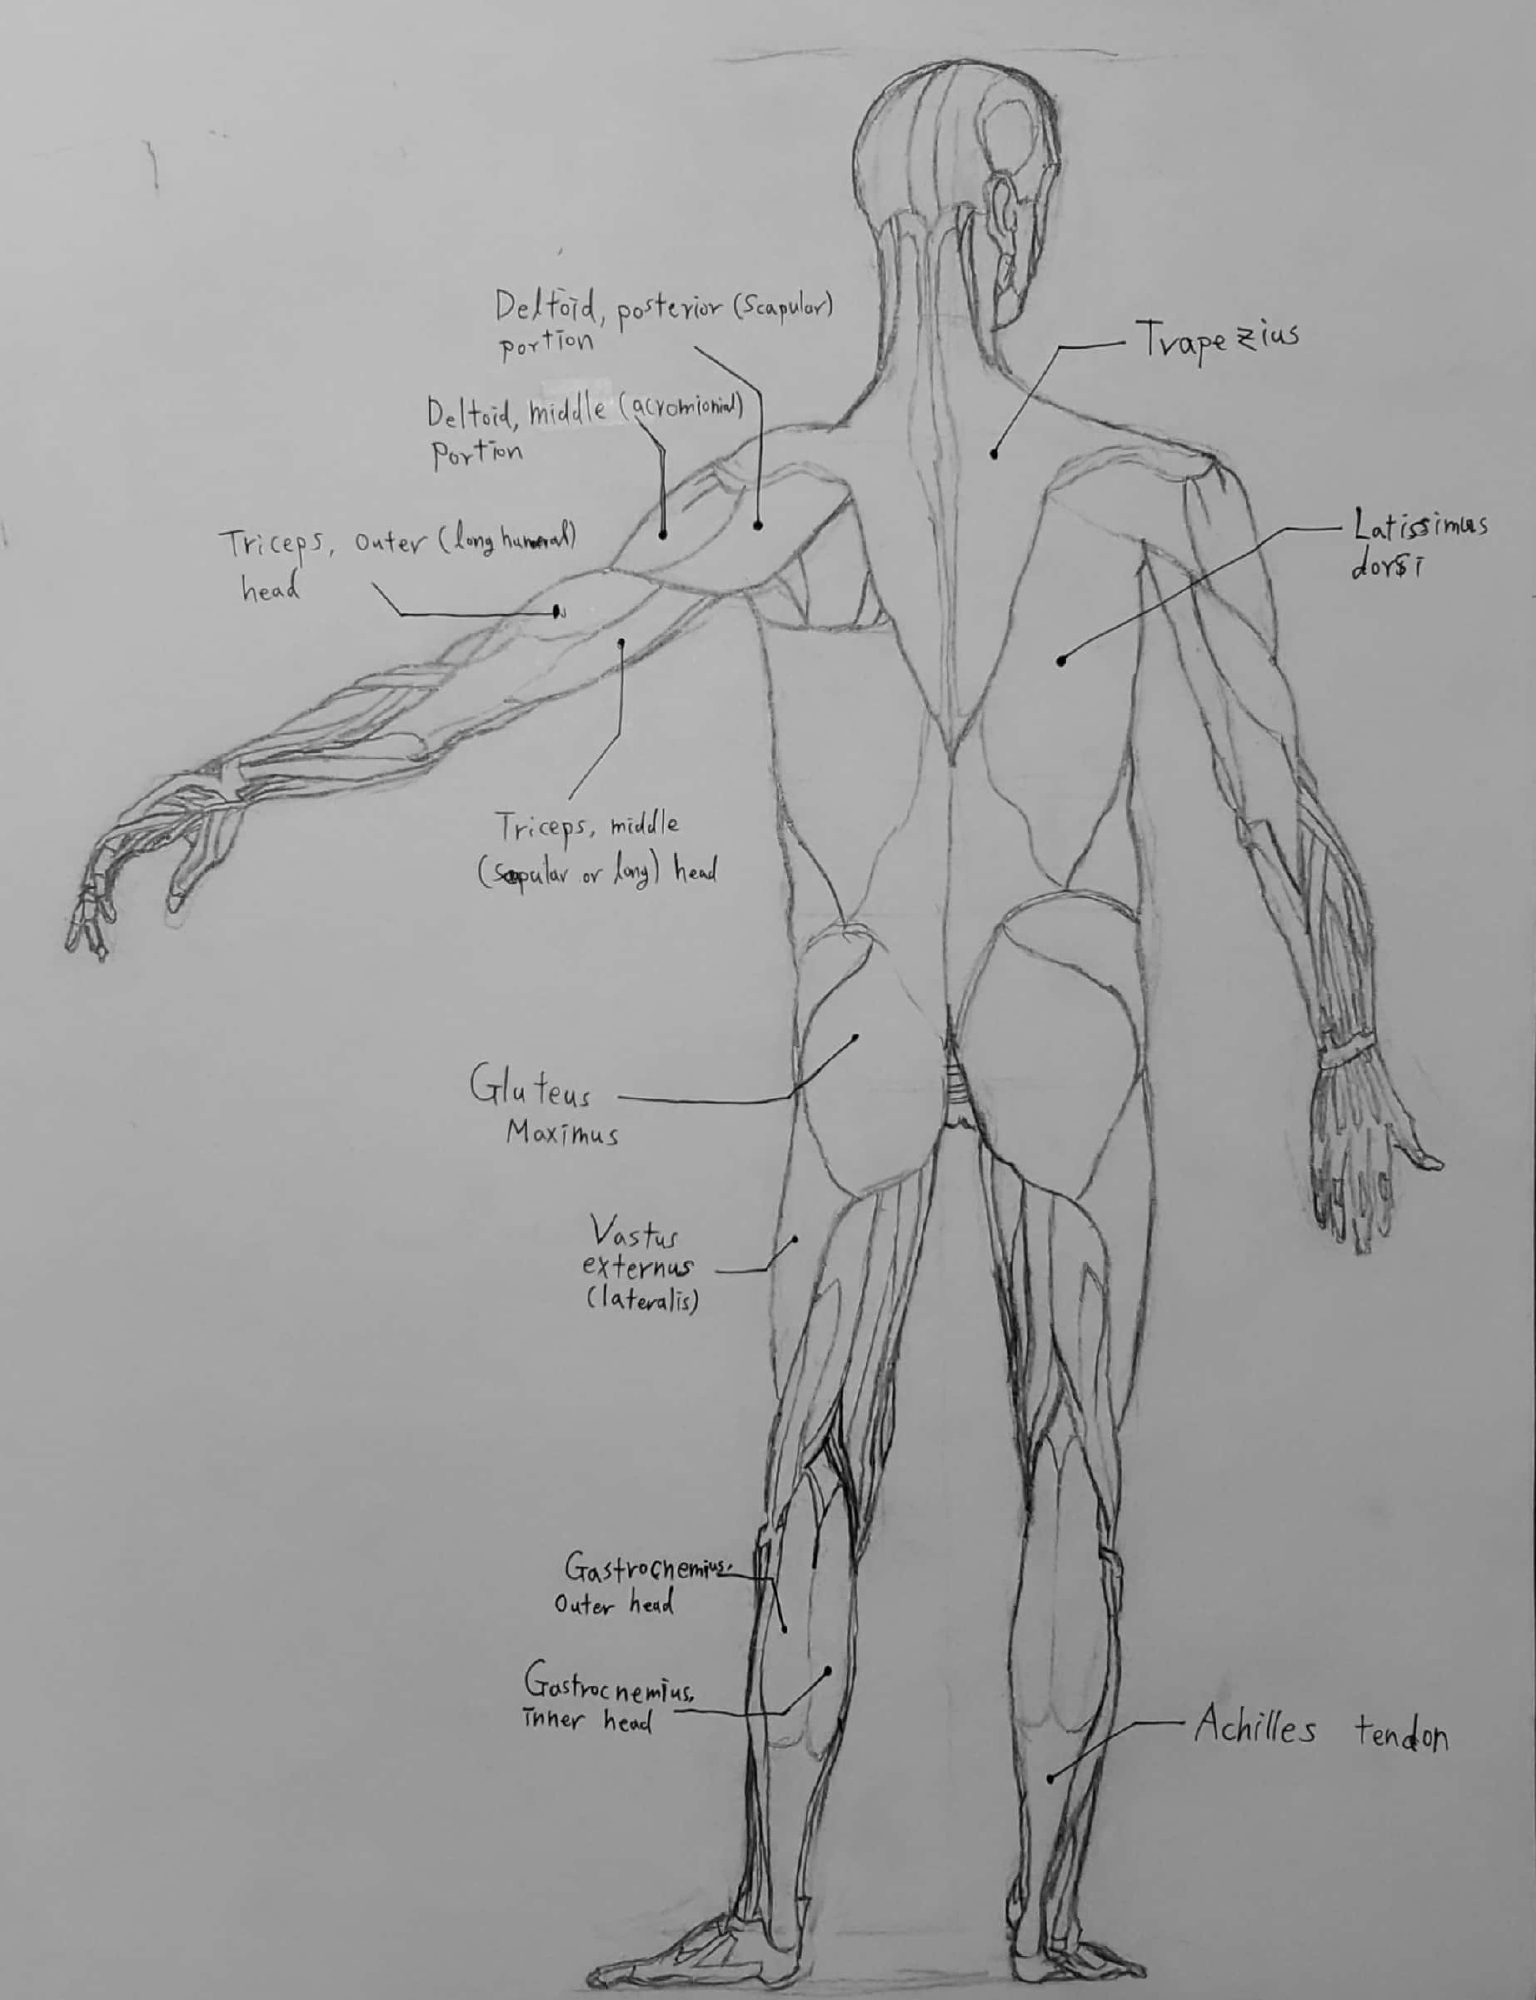 Deltoid, posterior (Scapular)
portion
Trapezius
Deltoid, middle (acromionial)
Portion
Triceps, Outer (long humeral)
head
Latissimus
dorsi
Triceps, middle
(scapular or long) head
Gluteus
Maximus
Vastus
externus
(lateralis)
Gastrocnemius,
Outer head
Gastrocnemius,
inner head
Achilles tendon